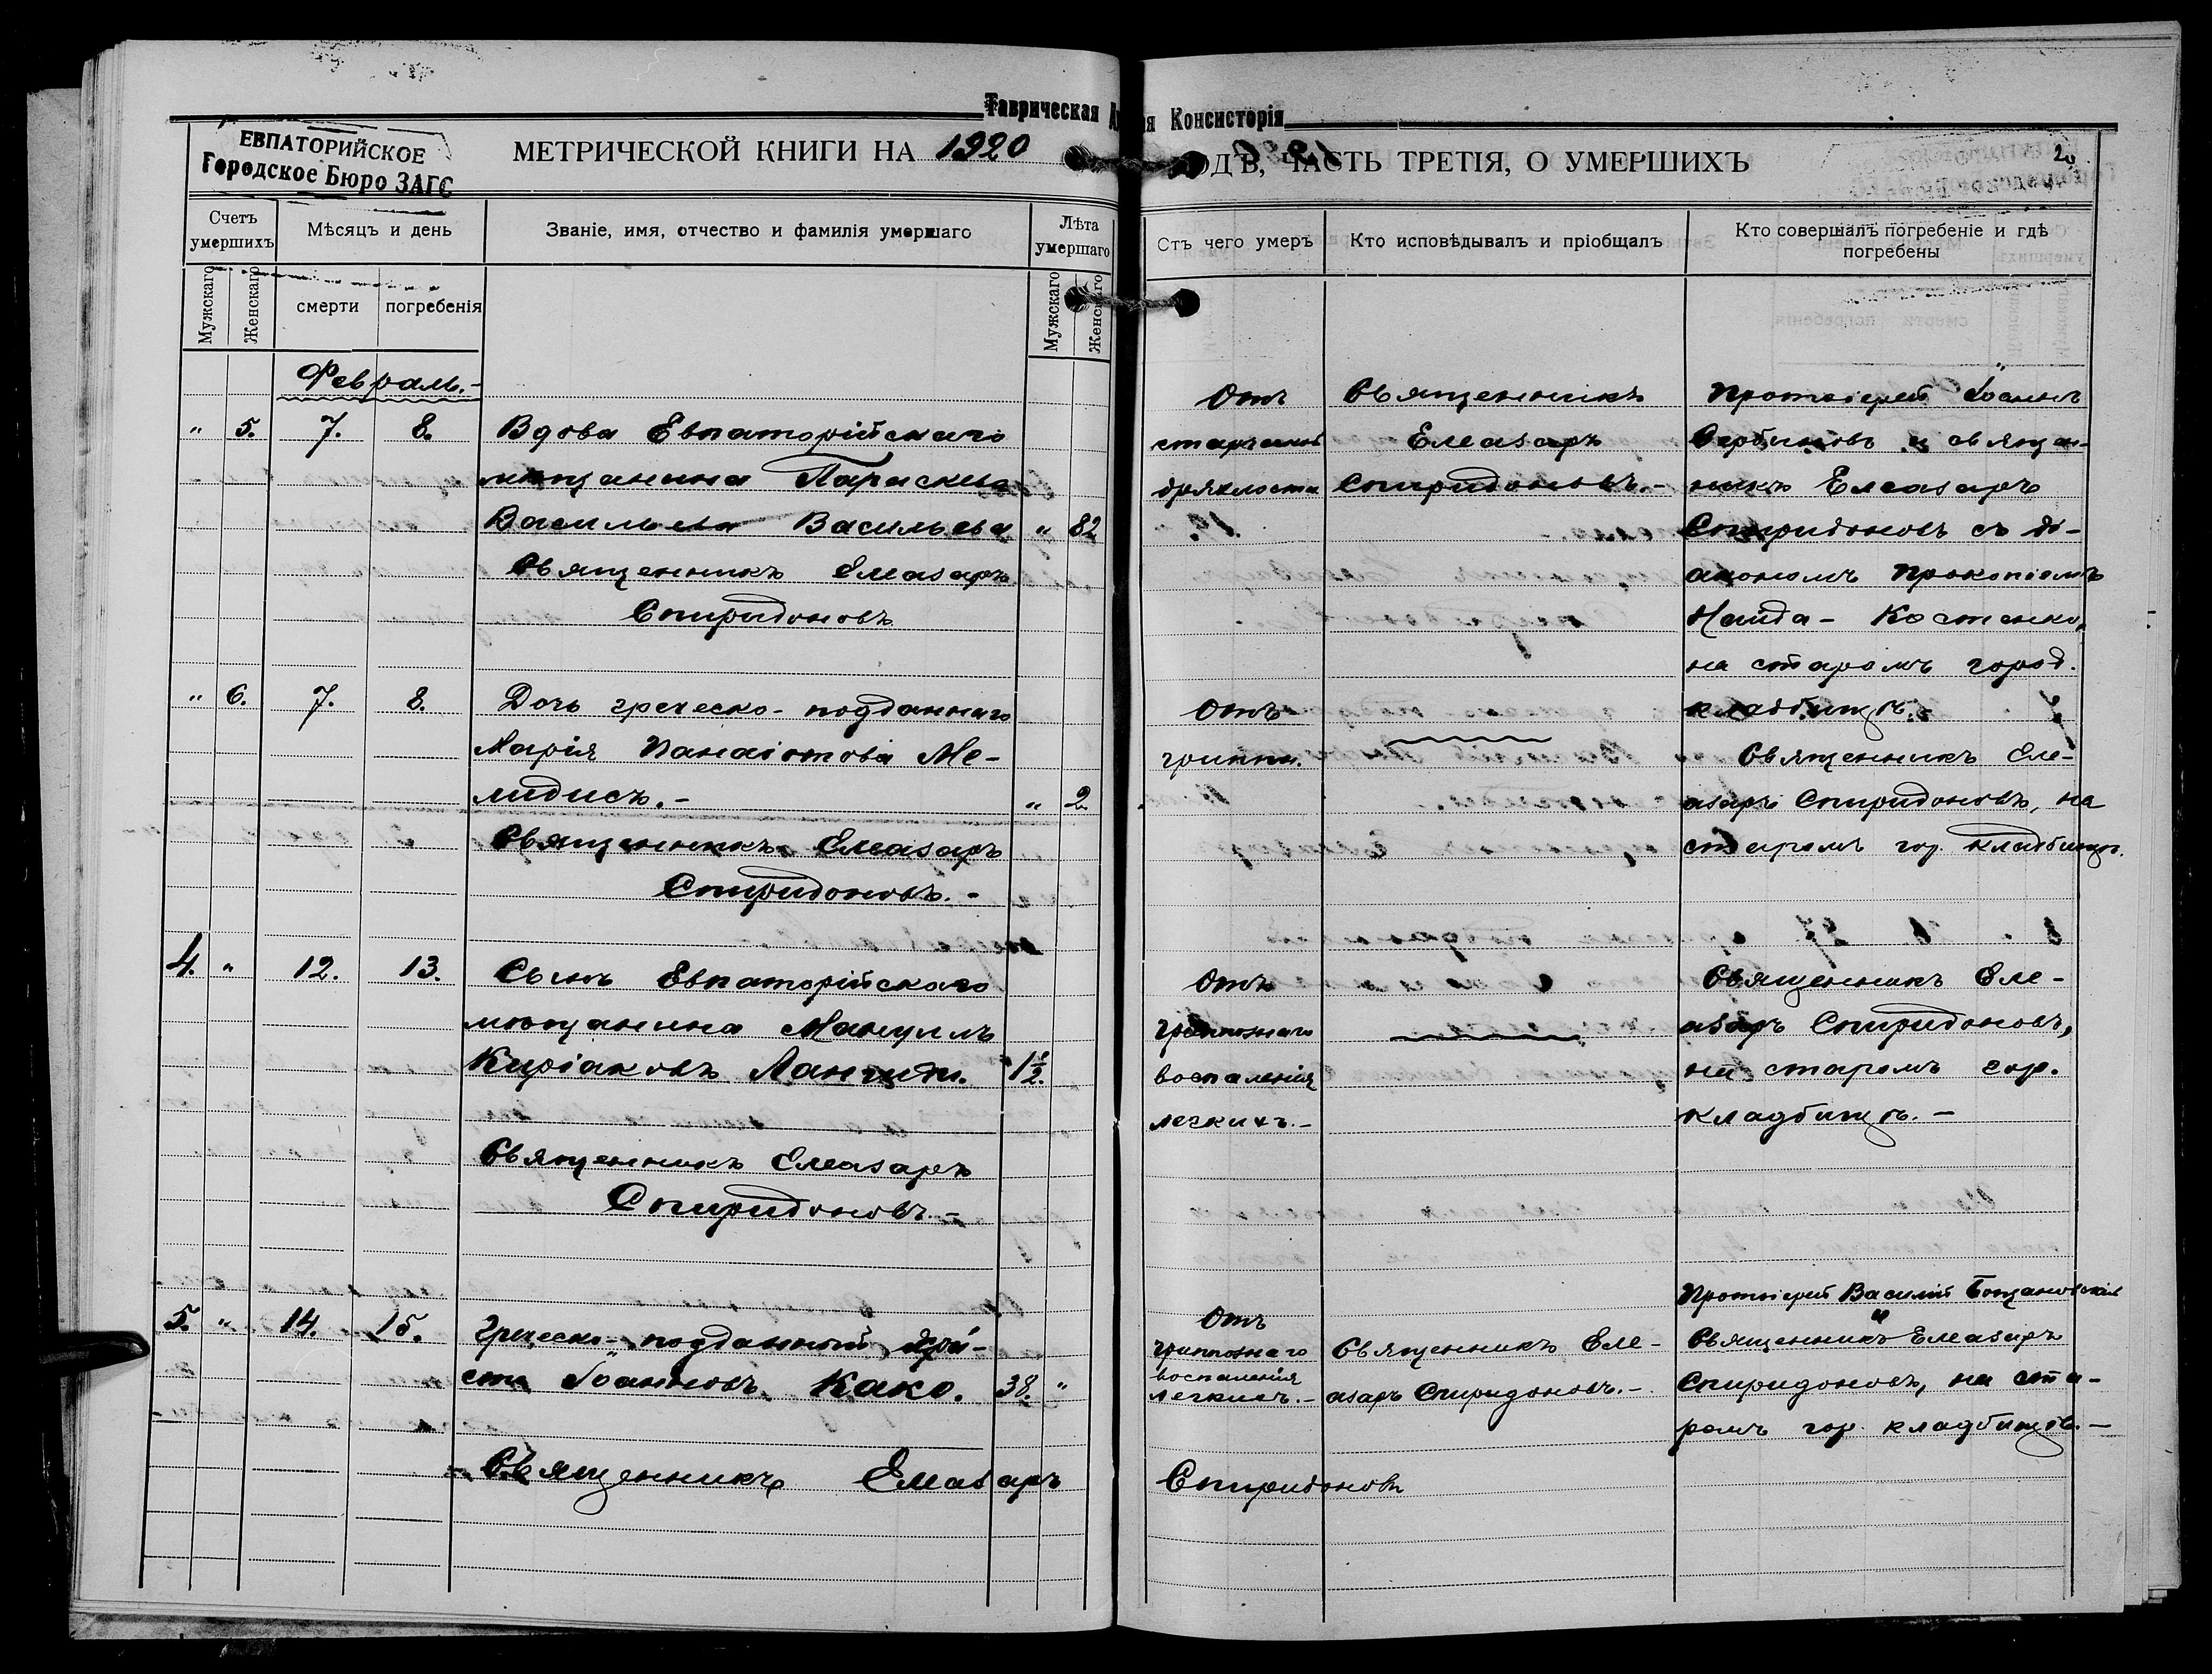 Таврическая
я Консисторія
ЕВПАТОРИЙСКОЕ
Городское Бюро ЗАГС
МЕТРИЧЕСКОЙ КНИГИ НА 1920
ОДЪ, ЧАСТЬ ТРЕТІЯ, О УМЕРШИХЪ
20
Счетъ умершихъ
Мужскаго
Женскаго
Мѣсяцъ и день
смерти
погребенія
Званіе, имя, отчество и фамилія умершаго
Лѣта умершаго
Мужскаго
Женскаго
Отъ чего умеръ
Кто исповѣдывалъ и пріобщалъ
Кто совершалъ погребеніе и гдѣ
погребены
Февраль.-
" 5. 7. 8.
Вдова Евпаторійскаго
мѣщанина Параскева
Васильева Васильева " 82
Священникъ Елеазаръ
Спиридоновъ
Отъ
старческой
дряхлости
Священникъ
Елеазаръ
Спиридоновъ.-
Протоіерей Іоаннъ
Сербиновъ и священ-
никъ Елеазаръ
Спиридоновъ съ ді-
акономъ Прокопіемъ
Найда-Костенко,
на старомъ город.
кладбищѣ.-
" 6. 7. 8.
Дочь греческо-подданнаго
Марія Панаіотова Ме-
лидисъ.- " 2
Священникъ Елеазаръ
Спиридоновъ.-
Отъ
гриппа.
Священникъ Еле-
азаръ Спиридоновъ, на
старомъ гор. кладбищѣ.
4. " 12. 13.
Сынъ Евпаторійскаго
мѣщанина Мануилъ
Киріаковъ 1½.
Священникъ Елеазаръ
Спиридоновъ.-
Отъ
гриппознаго
воспаленія
легкихъ.-
Священникъ Еле-
азаръ Спиридоновъ,
на старомъ гор.
кладбищѣ.-
5. " 14. 15.
Греческо-подданный Хри-
сто Іоанновъ Како. 38. "
Священникъ Елеазаръ
Спиридоновъ
Отъ
гриппознаго
воспаленія
легкихъ.-
Священникъ Еле-
азаръ Спиридоновъ.-
Протоіерей Василій
и
Священникъ Елеазаръ
Спиридоновъ, на ста-
ромъ гор. кладбищѣ.-